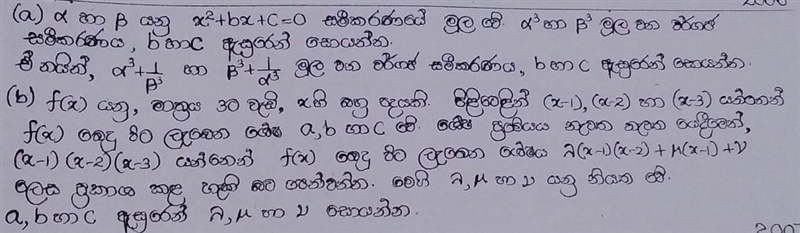 (a) α හා β යනු x²+bx+c=0 සමීකරණයේ මූල වේ. α³ හා β³ මූල වන වර්ගජ
සමීකරණය, b හා c ඇසුරෙන් සොයන්න.
ඒ නයින්, α³+1/β³ හා β³+1/α³ මූල වන වර්ගජ සමීකරණය, b හා c ඇසුරෙන් සොයන්න.
(b) f(x) යනු, මාත්‍රය 3ට වැඩි, xහි බහු පදයකි. පිළිවෙළින් (x-1), (x-2) හා (x-3) යන්නෙන්
f(x) බෙදූ විට ලැබෙන ශේෂ a, b හා c වේ. ශේෂ ප්‍රමේයය නැවත නැවත යෙදීමෙන්,
(x-1)(x-2)(x-3) යන්නෙන් f(x) බෙදූ විට ලැබෙන ශේෂය λ(x-1)(x-2)+μ(x-1)+ν
ලෙස ප්‍රකාශ කළ හැකි බව පෙන්වන්න. මෙහි λ, μ හා ν යනු නියත වේ.
a, b හා c ඇසුරෙන් λ, μ හා ν සොයන්න.